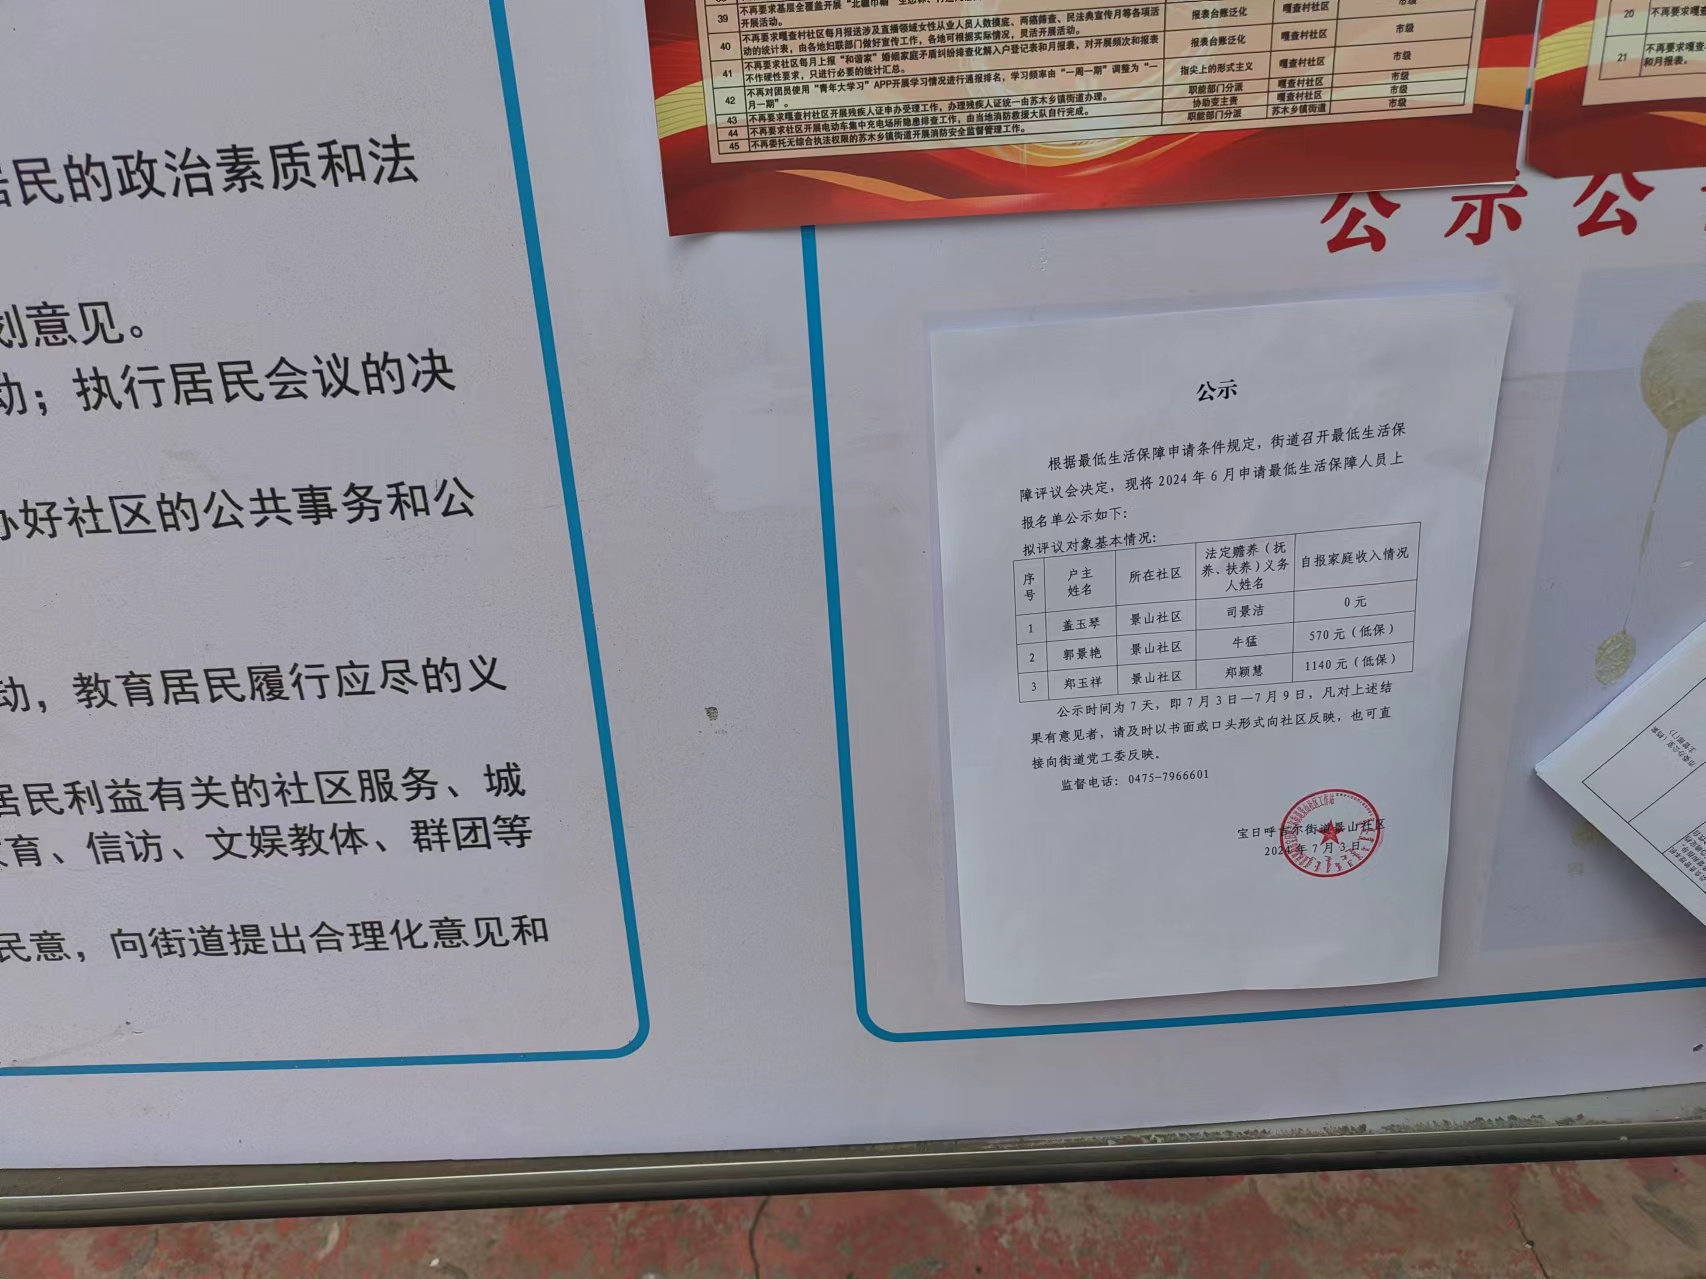 居民的政治素质和法
划意见。
动；执行居民会议的决
办好社区的公共事务和公
动，教育居民履行应尽的义
居民利益有关的社区服务、城
教育、信访、文娱教体、群团等
民意，向街道提出合理化意见和
39 开展活动。 报表台账泛化 嘎查村社区 市级
40 不再要求嘎查村社区每月报送涉及直播领域女性从业人员人数摸底、两癌筛查、民法典宣传月等各项活
动的统计表，由各地妇联部门做好宣传工作，各地可根据实际情况，灵活开展活动。 报表台账泛化 嘎查村社区 市级
41 不再要求社区每月上报“和谐家”婚姻家庭矛盾纠纷排查化解入户登记表和月报表，对开展频次和报表
不作硬性要求，只进行必要的统计汇总。 指尖上的形式主义 嘎查村社区 市级
42 不再对团员使用“青年大学习”APP开展学习情况进行通报排名，学习频率由“一周一期”调整为“一
月一期”。 职能部门分派 嘎查村社区 市级
43 不再要求嘎查村社区开展残疾人证申办受理工作，办理残疾人证统一由苏木乡镇街道办理。 协助变主责 嘎查村社区 市级
44 不再要求社区开展电动车集中充电场所隐患排查工作，由当地消防救援大队自行完成。 职能部门分派 苏木乡镇街道 市级
45 不再委托无综合执法权限的苏木乡镇街道开展消防安全监督管理工作。
20 不再要求嘎
21 不再要求嘎查
和月报表。
公示公
公示
根据最低生活保障申请条件规定，街道召开最低生活保
障评议会决定，现将 2024 年 6 月申请最低生活保障人员上
报名单公示如下：
拟评议对象基本情况：
序号 户主姓名 所在社区 法定赡养（抚养、扶养）义务人姓名 自报家庭收入情况
1 盖玉琴 景山社区 司景洁 0 元
2 郭景艳 景山社区 牛猛 570 元（低保）
3 郑玉祥 景山社区 郑颖慧 1140 元（低保）
公示时间为 7 天，即 7 月 3 日—7 月 9 日，凡对上述结
果有意见者，请及时以书面或口头形式向社区反映，也可直
接向街道党工委反映。
监督电话：0475-7966601
宝日呼吉尔街道景山社区
2024 年 7 月 3 日